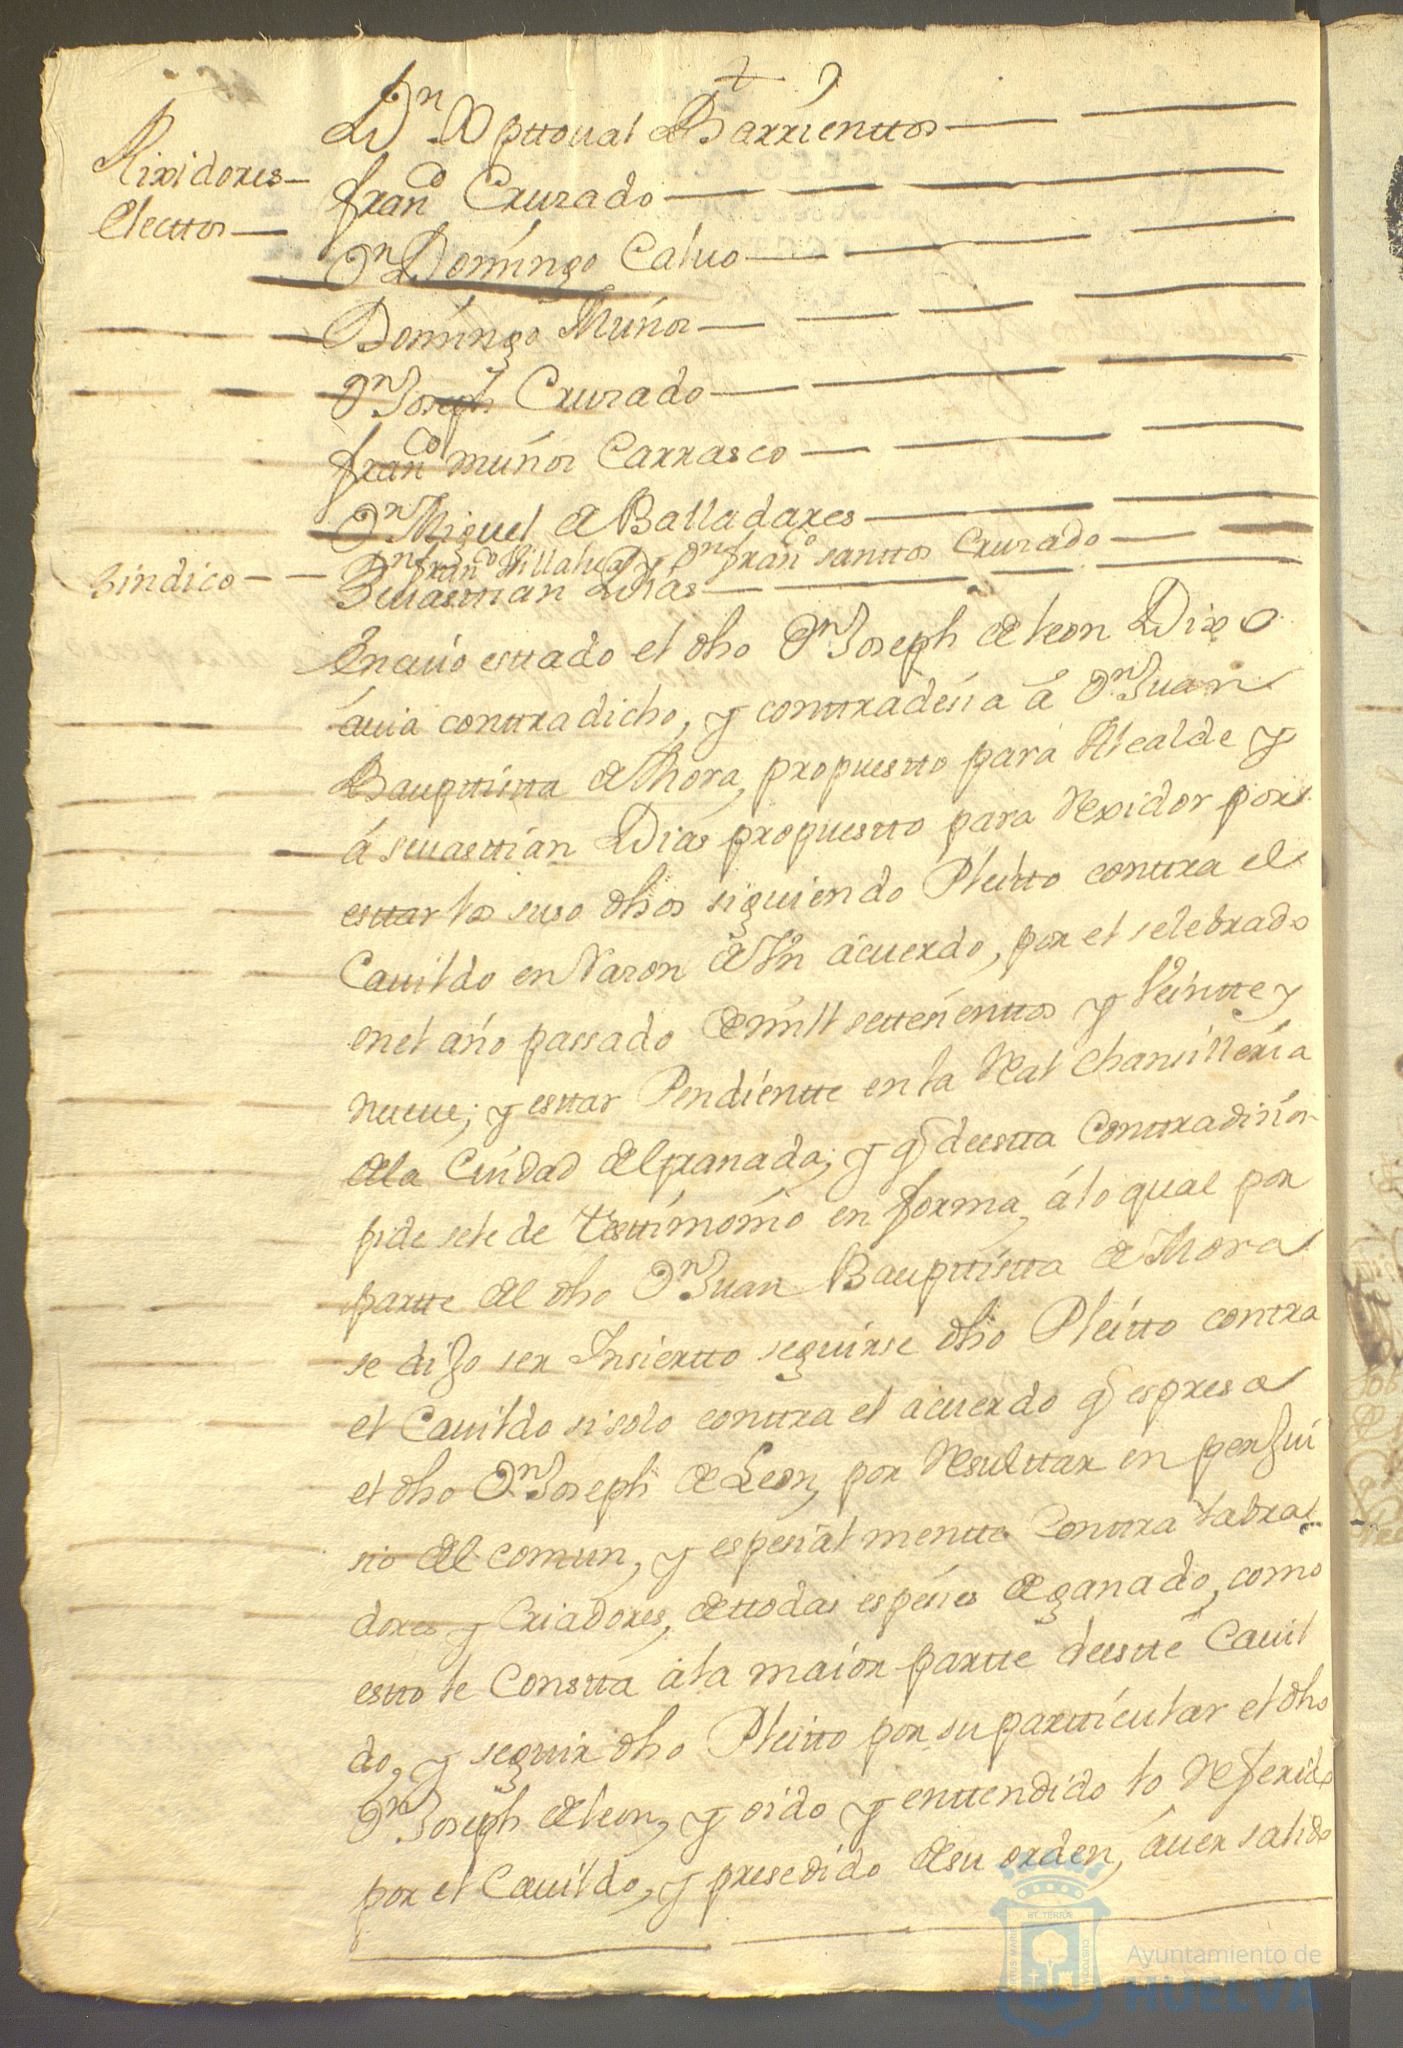 Dn Xpttoual Barrienttos
Rixidores
Electtos
franco Cruzado
Dn Domingo Caluo
Domingo Muños
Dn Joseph Cruzado
franco muños Carrasco
Dn Miguel de Balladares
Sindico
Dn franco Villalua y Dn franco santtos Cruzado
Seuasttian Dias
En auio esttado el dho Dn Joseph de leon Dixo
áuia conttradicho, y conttradesia á Dn Juan
Baupttistta de Mora, propuestto para Alcalde y
á seuasttian Dias propuestto para Rexidor por
esttar los suso dhos siguiendo Pleitto conttra el
Cauildo en Razon de Un ácuerdo, por el selebrado
en el año passado de mill settesienttos y Veintte y
nueue; y esttar Pendientte en la Real Chansilleria
de la Ciudad de Granada; y q deestta Conttradision
pide se le de testtimonio en forma, á lo qual por
partte del dho Dn Juan Baupttistta de Mora
se dijo ser Insiertto seguirse dho Pleitto contra
el Cauildo si solo conttra el ácuerdo q espresa
el dho Dn Joseph de Leon, por Resulttar en perjui
sio del comun, y espesialmentte Conttra labra
dores y Criadores, de ttodas espesies de ganado, como
estto le Constta á la maior partte deestte Cauil
do, y seguir dho Pleitto por su partticular el dho
Dn Joseph de leon, y oido y enttendido lo Referido
por el Cauildo, y presedido de su orden, áuer salido
ET TERRA
Ayuntamiento de
HUELVA